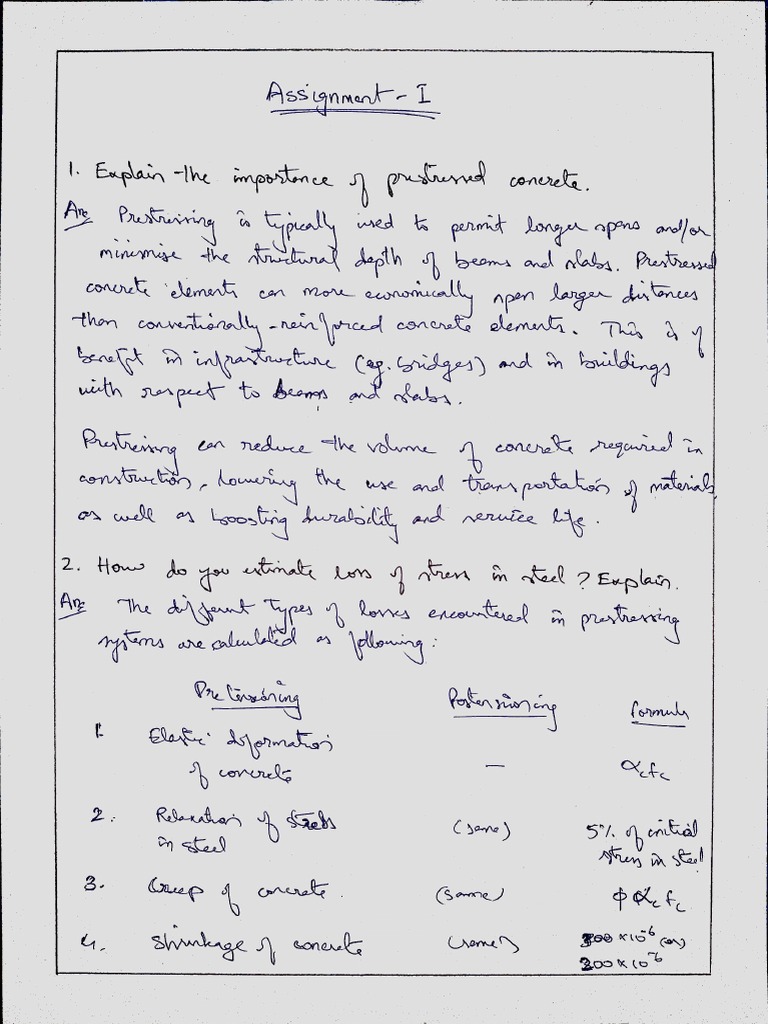 Assignment - I
1. Explain the importance of prestressed concrete.
Ans Prestressing is typically used to permit longer spans and/or
minimise the structural depth of beams and slabs. Prestressed
concrete elements can more economically span larger distances
than conventionally-reinforced concrete elements. This is of
benefit in infrastructure (eg. bridges) and in buildings
with respect to beams and slabs.
Prestressing can reduce the volume of concrete required in
construction, lowering the use and transportation of materials,
as well as boosting durability and service life.
2. How do you estimate loss of stress in steel? Explain.
Ans The different types of losses encountered in prestressing
systems are calculated as following:
Pretensioning Postensioning Formula
1. Elastic deformation
of concrete — αcfc
2. Relaxation of stress
in steel (same) 5% of initial
stress in steel
3. Creep of concrete. (same) φ αc fc
4. Shrinkage of concrete (same) 300 × 10⁻⁶ (or)
200 × 10⁻⁶